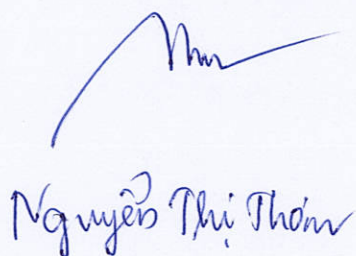 Nguyễn Thị Thơm